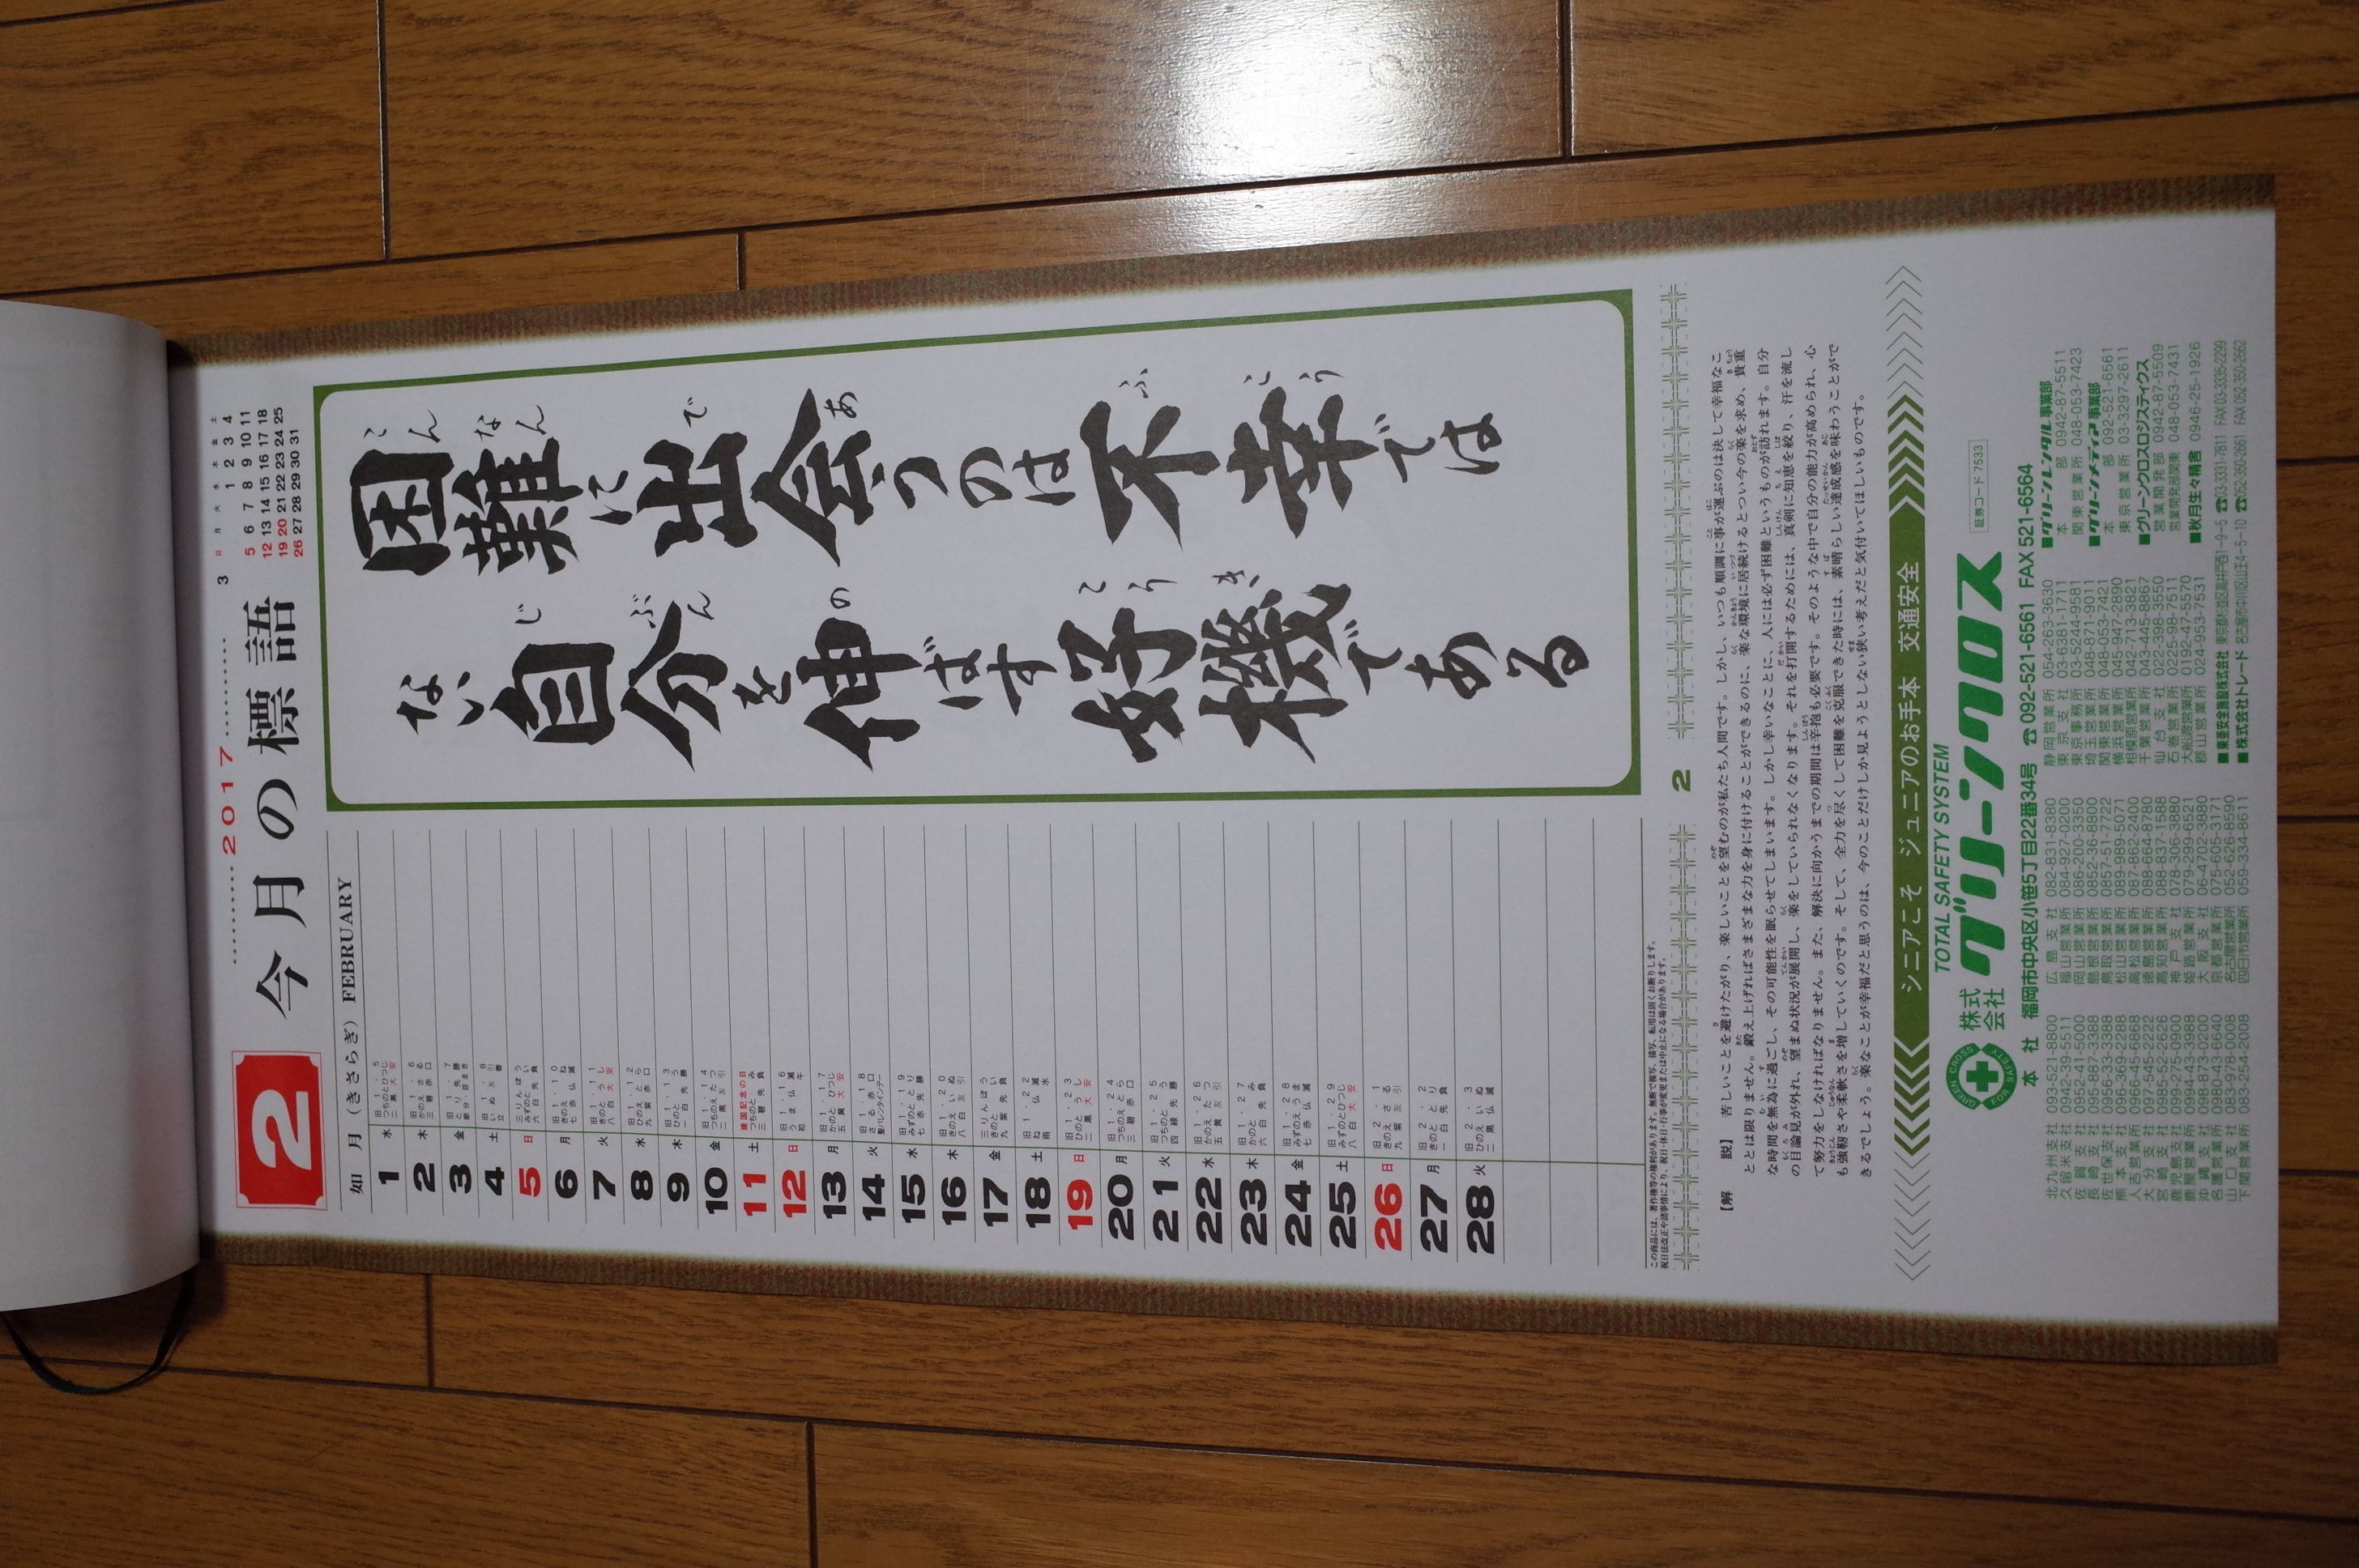 2
2017
今月の標語
3
日 月 火 水 木 金 土
1 2 3 4
5 6 7 8 9 10 11
12 13 14 15 16 17 18
19 20 21 22 23 24 25
26 27 28 29 30 31
如月（きさらぎ）FEBRUARY
困難に出会うのは不幸では
こんなん で あ ふ こう
ない自分を伸ばす好機である
じ ぶん の こう き
1 水
2 木
3 金
4 土
5 日
6 月
7 火
8 水
9 木
10 金
11 土 建国記念の日
12 日
13 月
14 火 聖バレンタインデー
15 水
16 木
17 金
18 土
19 日
20 月
21 火
22 水
23 木
24 金
25 土
26 日
27 月
28 火
この商品には、著作権等の権利があります。無断で複写、描写、転用は固くお断りします。
祝日法改正や諸事情により、祝日・休日・行事が変更または中止になる場合があります。
2
【解 説】 苦しいことを避けたがり、楽しいことを望むのが私たち人間です。しかし、いつも順調に事が運ぶのは決して幸福なこ
ととは限りません。鍛え上げればさまざまな力を身に付けることができるのに、楽な環境に居続けるとつい今の楽を求め、貴重
な時間を無為に過ごし、その可能性を眠らせてしまいます。しかし幸いなことに、人には必ず困難というものが訪れます。自分
の目論見が外れ、望まぬ状況が展開し、楽をしていられなくなります。それを打開するためには、真剣に知恵を絞り、汗を流し
て努力をしなければなりません。また、解決に向かうまでの期間は辛抱も必要です。そのような中で自分の能力が高められ、心
も強靭さや柔軟さを増していくのです。そして、全力を尽くして困難を克服できた時には、素晴らしい達成感を味わうことがで
きるでしょう。楽なことが幸福だと思うのは、今のことだけしか見ようとしない狭い考えだと気付いてほしいものです。
シニアこそ ジュニアのお手本 交通安全
TOTAL SAFETY SYSTEM
GREEN CROSS
FOR SAFETY
株式会社 グリーンクロス
証券コード 7533
本 社 福岡市中央区小笹5丁目22番34号 ☎092-521-6561 FAX 521-6564
北九州支社 093-521-8800
久留米支社 0942-39-5511
佐賀支社 0952-41-5000
長崎支社 095-887-3388
佐世保支社 0956-33-3388
熊本支社 096-369-2288
人吉営業所 0966-45-6868
大分支社 097-545-2222
宮崎支社 0985-52-2626
鹿児島支社 099-275-0900
鹿屋営業所 0994-43-3988
沖縄支社 098-873-0200
名護営業所 0980-43-6640
山口支社 083-978-0018
下関営業所 083-254-2008
広島支社 082-831-8380
福山営業所 084-927-0200
岡山営業所 086-200-3350
島根営業所 0852-36-8800
鳥取営業所 0857-51-7722
松山営業所 089-989-5071
高松営業所 087-862-2400
徳島営業所 088-664-8780
高知営業所 088-837-1588
神戸支社 078-306-3880
姫路営業所 079-299-6521
大阪支社 06-4702-3880
京都営業所 075-605-3171
名古屋営業所 052-626-8590
四日市営業所 059-334-8611
静岡営業所 054-263-3630
東京支社 03-6381-1711
東京事務所 03-5244-9581
埼玉営業所 048-871-9011
関東営業所 048-053-7421
横浜営業所 045-947-2890
相模原営業所 042-713-3821
千葉営業所 043-445-8867
仙台支社 022-398-3550
石巻営業所 0225-98-7511
大船渡営業所 0192-47-5570
郡山営業所 024-953-7531
■グリーンレンタル事業部
本部 0942-87-5511
関東営業所 048-053-7423
■グリーンメディア事業部
本部 092-521-6561
東京営業所 03-3297-2611
■グリーンクロスロジスティクス
営業開発部 0942-87-5509
営業開発部関東 048-053-7431
■秋月生々精舎 0946-25-1926
■東亜安全施設株式会社 東京都杉並区高井戸西1-9-5 ☎03-3331-7811 FAX 03-3335-2299
■株式会社トレード 名古屋市中川区山王4-5-10 ☎052-350-2661 FAX 052-350-2662